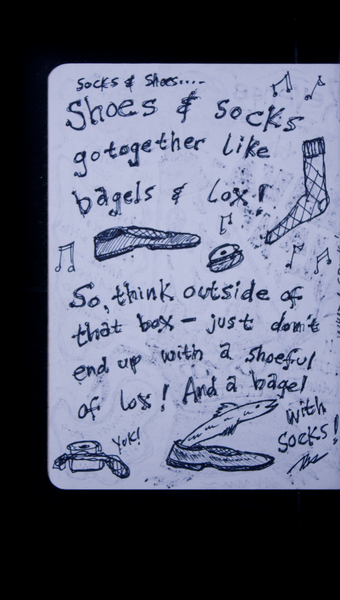 Socks & Shoes.....
Shoes & Socks
go together like
bagels & lox!
So, think outside of
that box - just don't
end up with a shoeful
of lox! And a bagel
with
socks!
YUK!